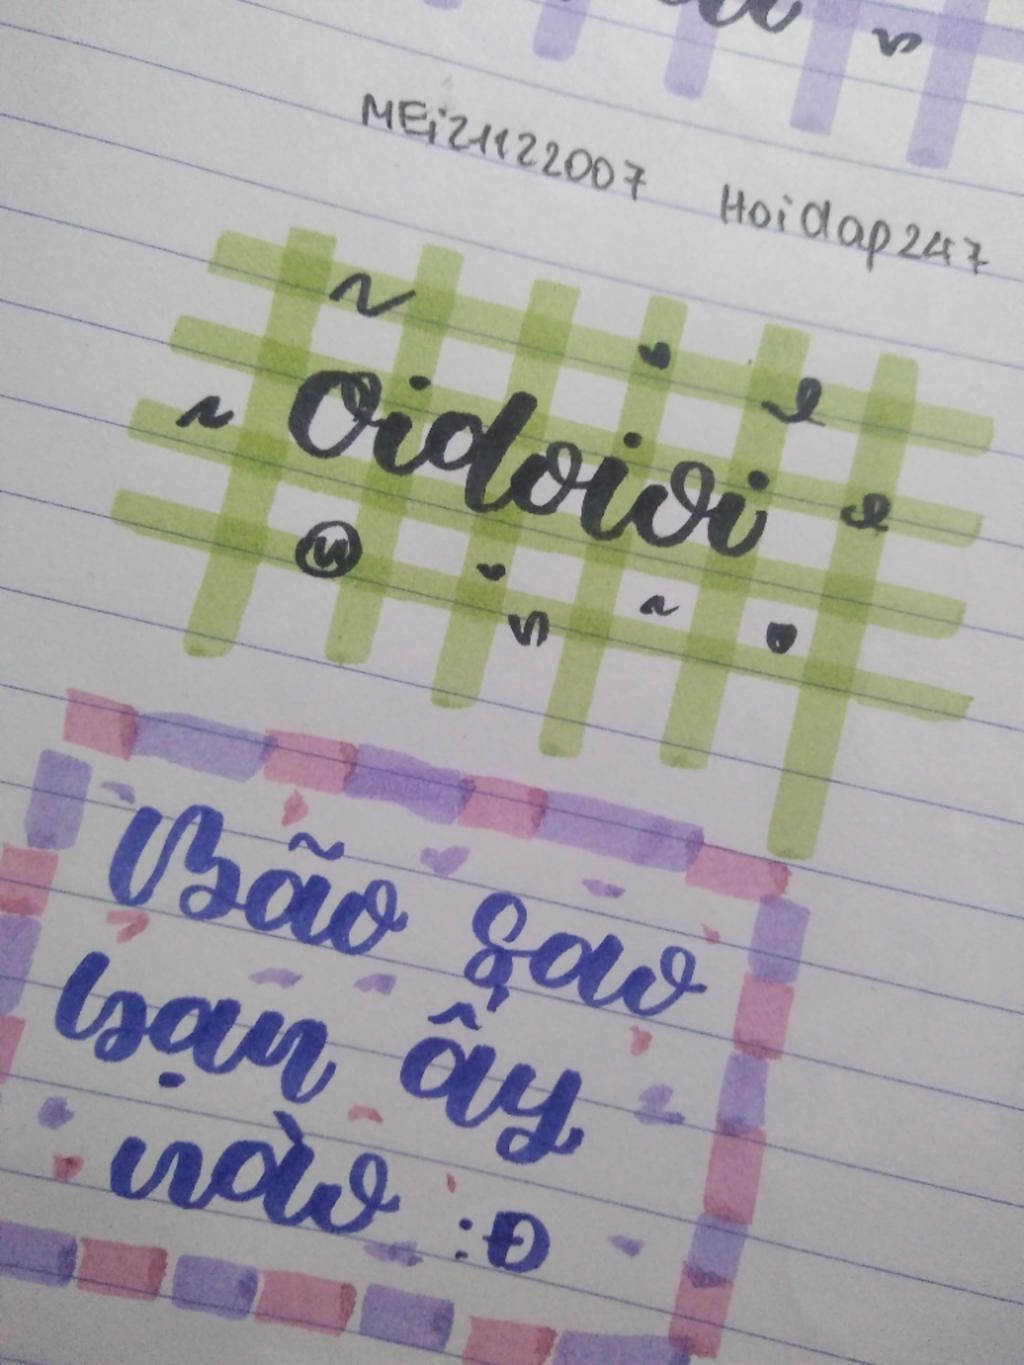 MEi21122007 Hoidap247
Oidoioi
Bão sao
bạn ấy
nào :Đ